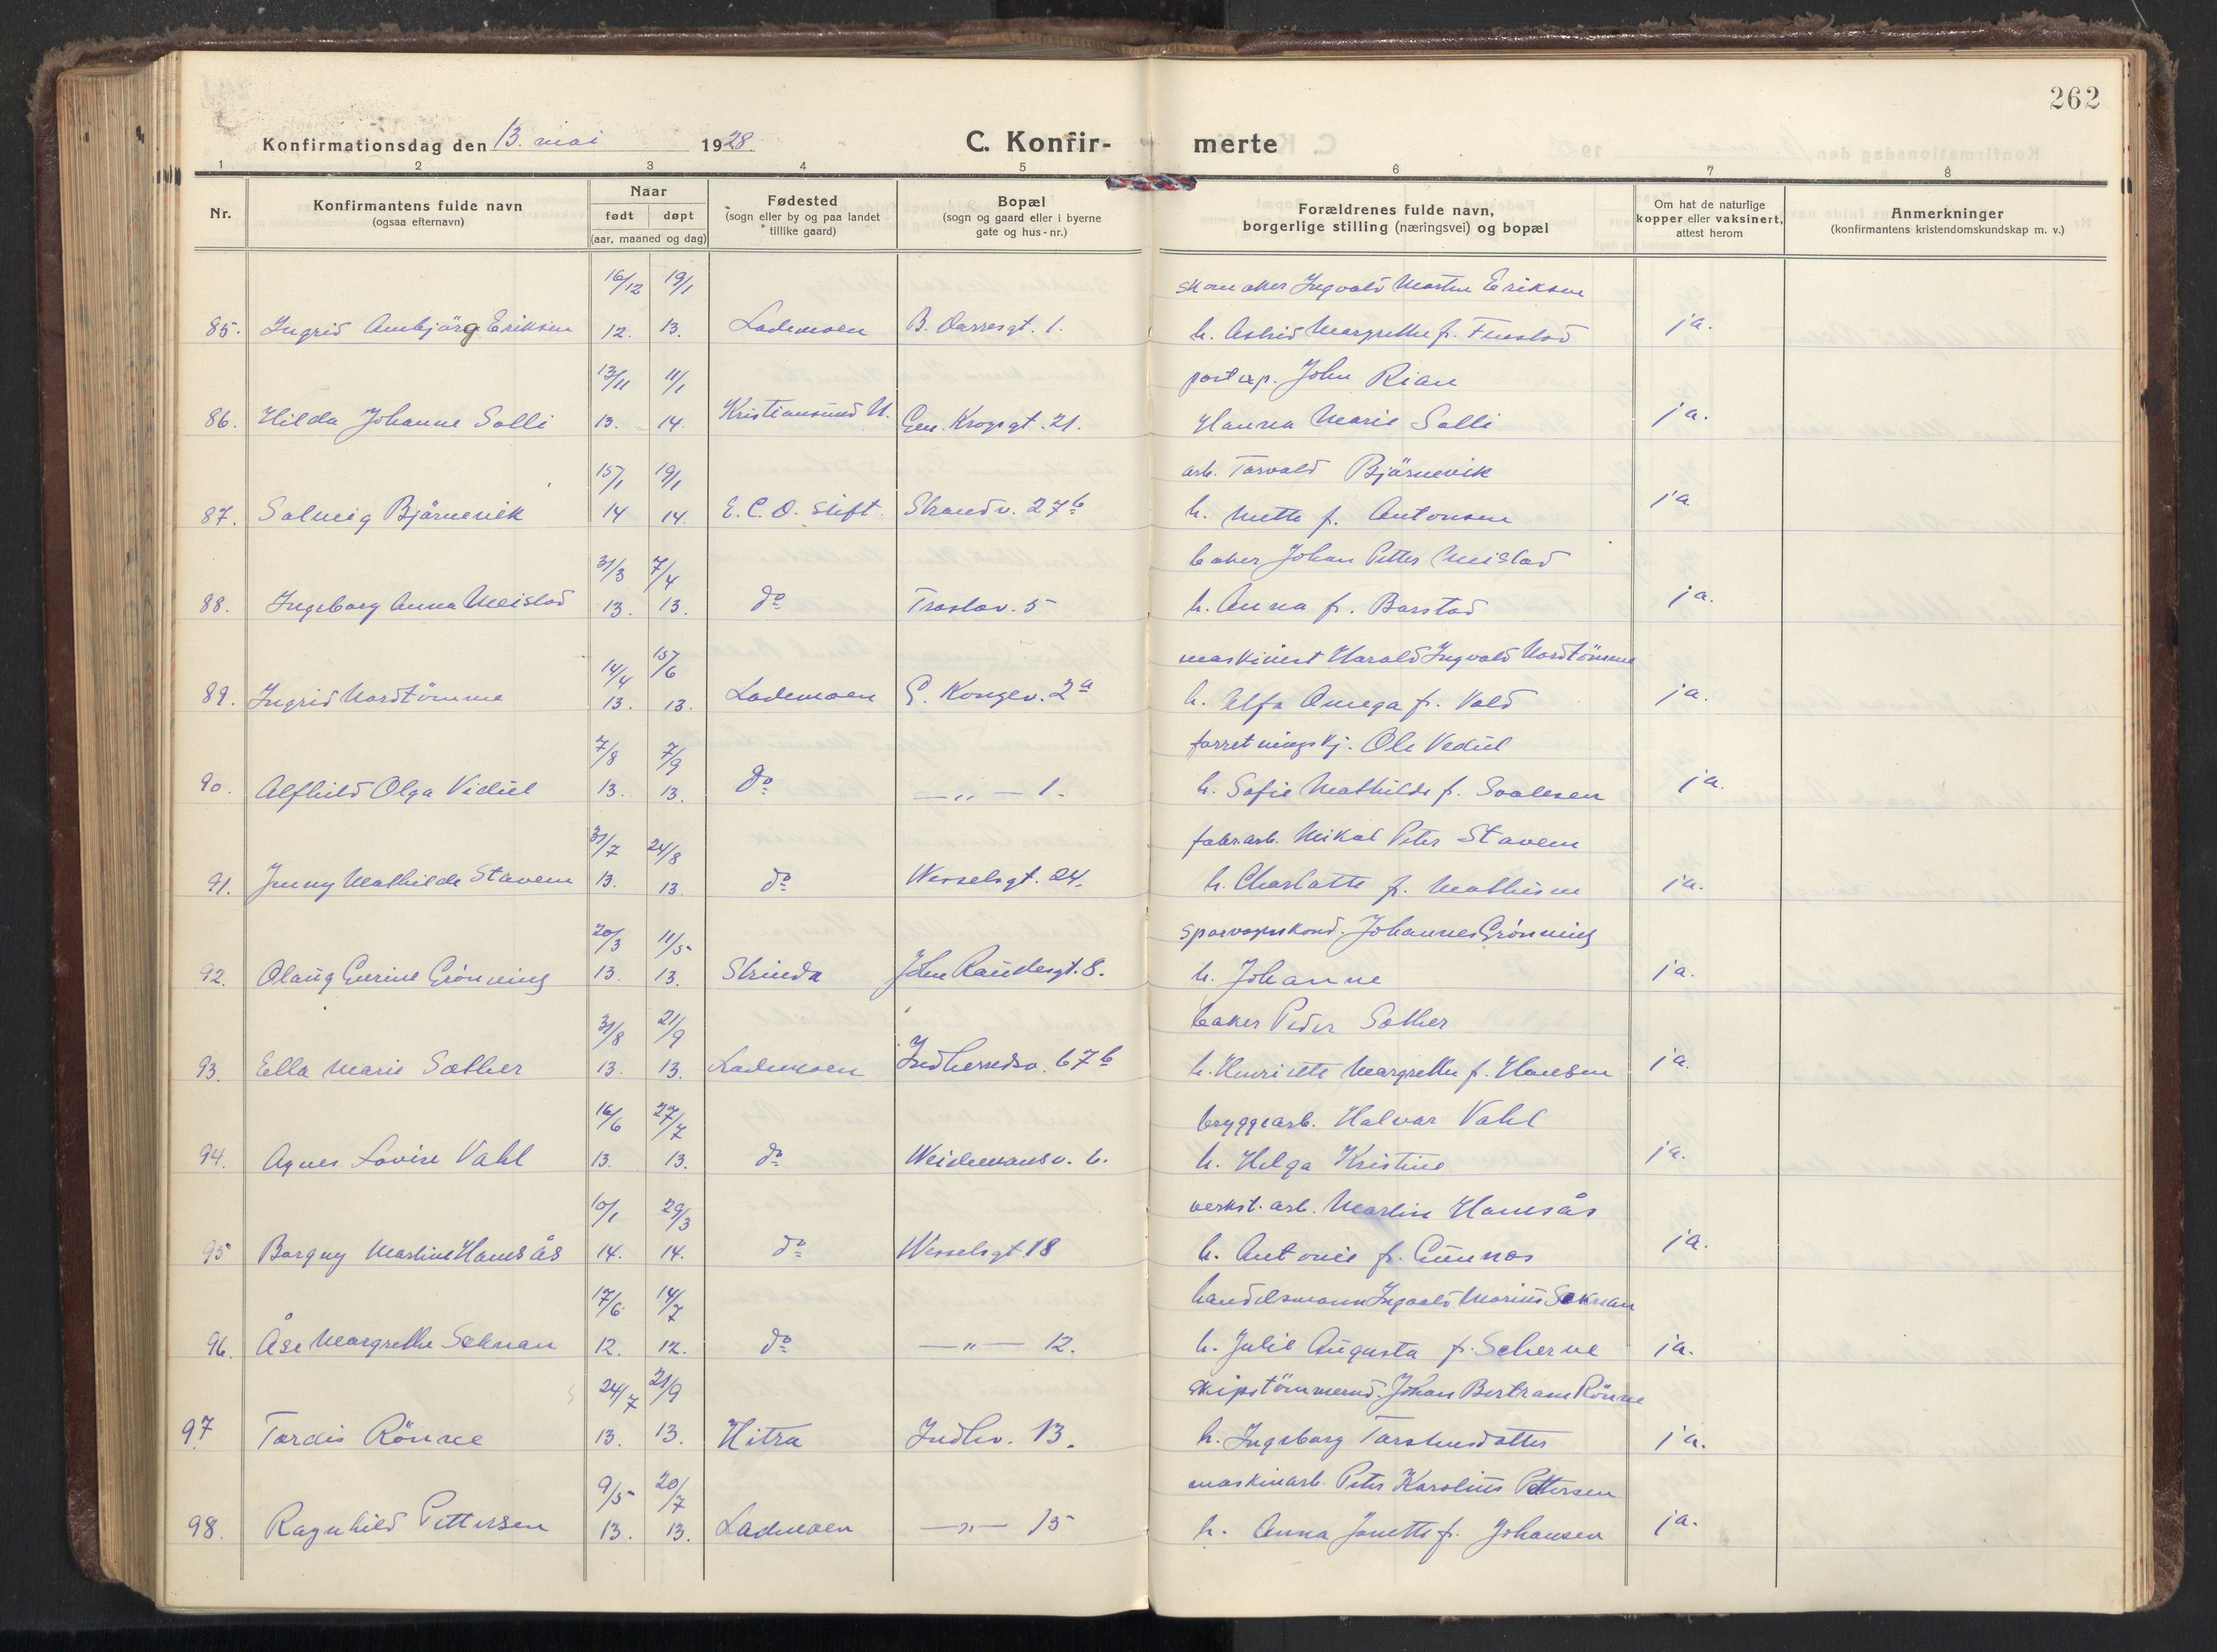 262
Konfirmationsdag den 13. mai 1928 C. Konfir- merte
1 2 3 4 5 6 7 8
Nr. Konfirmantens fulde navn (ogsaa efternavn) Naar født døpt (aar, maaned og dag) Fødested (sogn eller by og paa landet tillike gaard) Bopæl (sogn og gaard eller i byerne gate og hus-nr.) Forældrenes fulde navn, borgerlige stilling (næringsvei) og bopæl Om hat de naturlige kopper eller vaksinert, attest herom Anmerkninger (konfirmantens kristendomskundskap m. v.)
16/12 19/1 skomaker Ingvald Martin Eriksen
85. Ingrid Ambjörg Eriksen 12. 13. Lademoen B. Darresgt. 1. h. Astrid Margrethe f. ja.
13/11 11/1 postexp. John Rian
86. Hilda Johanne Solli 13. 14. Kristiansund N. Gen. Krogsgt. 21. Hanna Marie Solli ja.
15/1 19/1 arb. Torvald Bjärnevik
87. Solveig Bjärnevik 14 14. E. C. D. stift. Strandv. 27b h. Mette f. Antonsen ja.
31/3 7/4 baker Johan Petter Meistad
88. Ingeborg Anna Meistad 13. 13. do Troslav. 5 h. Anna f. Barstad ja.
14/4 15/6 maskinist Harald Ingvald Nordtömme
89. Ingrid Nordtömme 13. 13. Lademoen G. Kongev. 2a h. Alfa Omega f. Vold ja.
7/8 7/9 forretningsbj. Ole Vediul
90. Alfhild Olga Vidiul 13. 13. do —„— 1. h. Sofie Mathilde f. ja.
31/7 24/8 fabr.arb. Mikal Peter Stavem
91. Jenny Mathilde Stavem 13. 13. do Wesselsgt. 24. h. Charlotte f. Mathisen ja.
20/3 11/5 sporvognskond. Johannes Grönning
92. Olaug Gurine Grönning 13. 13. Strinda John Raudesgt. 8. h. Johanne ja.
31/8 21/9 baker Peder Sæther
93. Ella Marie Sæther 13. 13. Lademoen Indherredsv. 67b h. Henriette Margrethe f. Hansen ja.
16/6 27/7 bryggearb. Halvar Vahl
94. Agnes Lovise Vahl 13. 13. do Weidemansv. 6. h. Helga Kristine ja.
10/1 29/3 verkst. arb. Martin Hamsås
95 Borgny Martine Hamsås 14. 14. do Wesselsgt. 18 h. Antonie f. Gunnes ja.
17/6 14/7 handelsmann Ingvald Marius Seknan
96. Åse Margrethe Seknan 12. 12. do —„— 12. h. Julie Augusta f. Scherve ja.
24/7 21/9 skipstömmermd. Johan Bertram Rönne
97 Tordis Rönne 13. 13. Hitra Indhv. 13. h. Ingeborg Torstensdotter ja.
9/5 20/7 maskinarb. Peter Karolius Pettersen
98. Ragnhild Pettersen 13. 13. Lademoen —„— 15 h. Anna Janette f. Johansen ja.